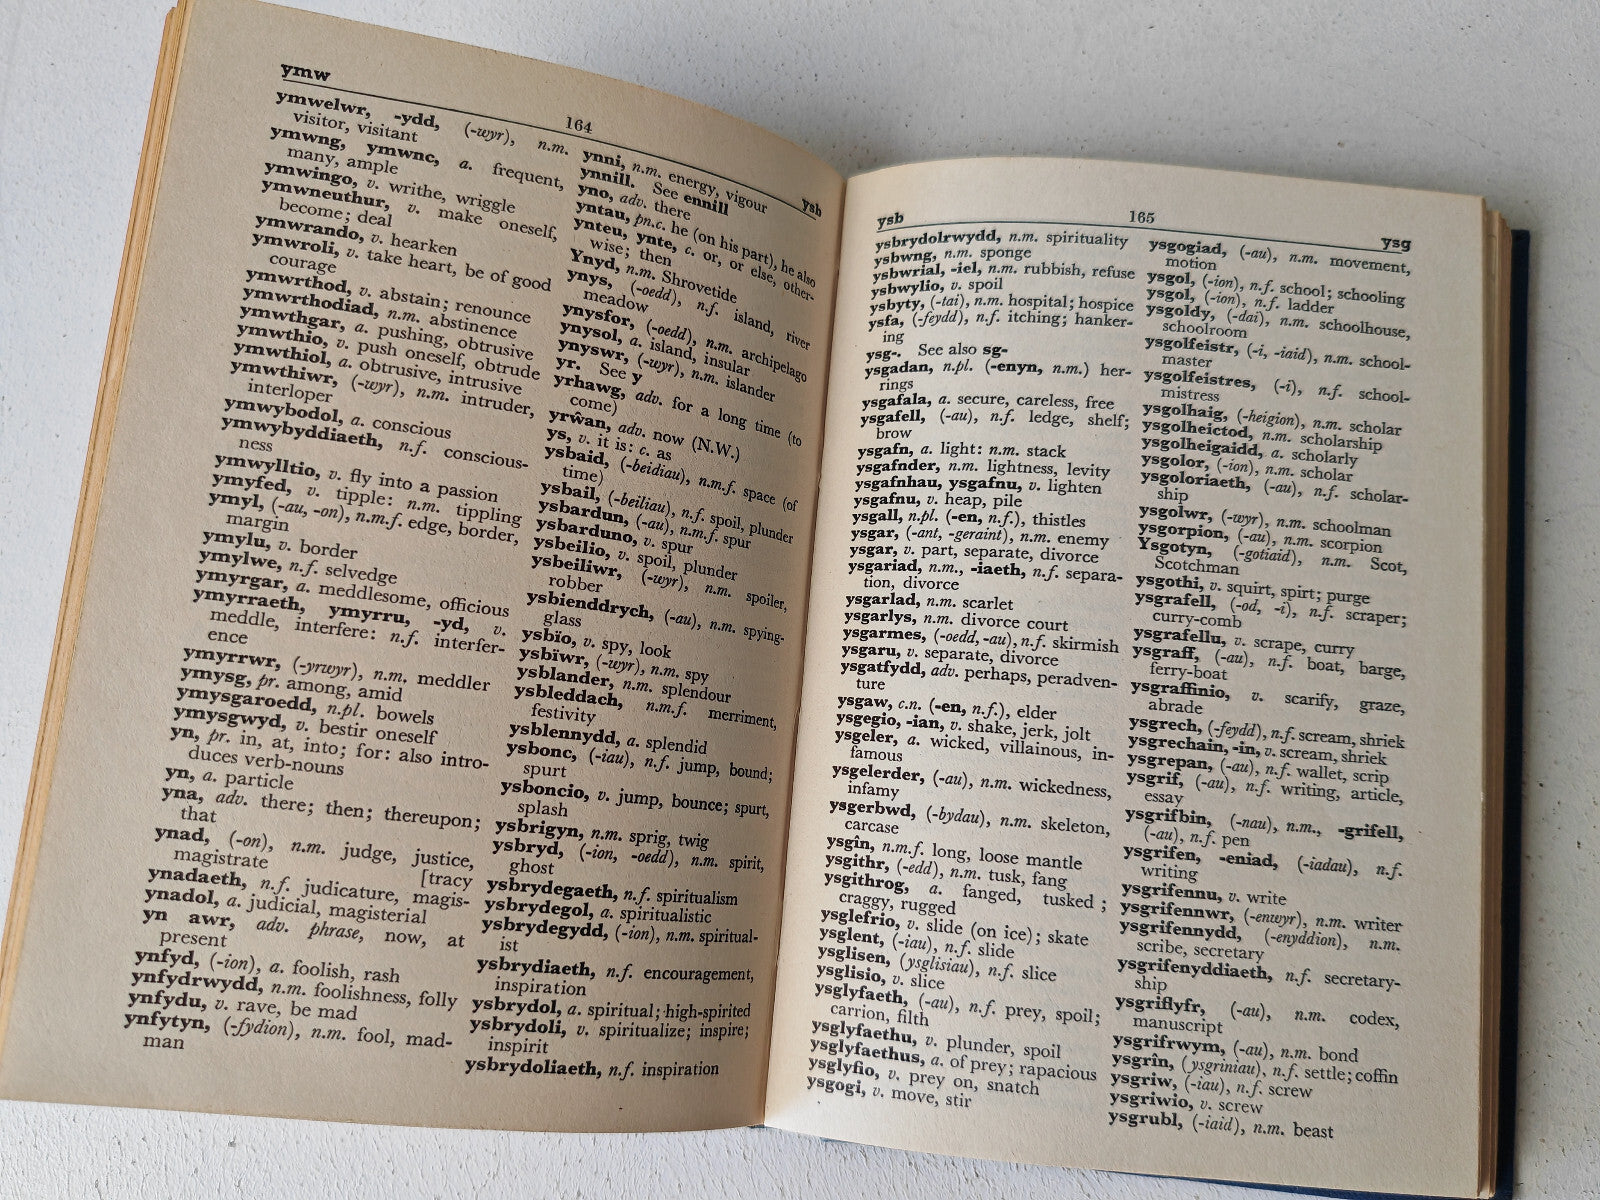 ymw
164
ysb
ymwelwr, -ydd, (-wyr), n.m.
visitor, visitant
ymwng, ymwnc, a. frequent,
many, ample
ymwingo, v. writhe, wriggle
ymwneuthur, v. make oneself,
become; deal
ymwrando, v. hearken
ymwroli, v. take heart, be of good
courage
ymwrthod, v. abstain; renounce
ymwrthodiad, n.m. abstinence
ymwthgar, a. pushing, obtrusive
ymwthio, v. push oneself, obtrude
ymwthiol, a. obtrusive, intrusive
ymwthiwr, (-wyr), n.m. intruder,
interloper
ymwybodol, a. conscious
ymwybyddiaeth, n.f. conscious-
ness
ymwylltio, v. fly into a passion
ymyfed, v. tipple: n.m. tippling
ymyl, (-au, -on), n.m.f. edge, border,
margin
ymylu, v. border
ymylwe, n.f. selvedge
ymyrgar, a. meddlesome, officious
ymyrraeth, ymyrru, -yd, v.
meddle, interfere: n.f. interfer-
ence
ymyrrwr, (-yrwyr), n.m. meddler
ymysg, pr. among, amid
ymysgaroedd, n.pl. bowels
ymysgwyd, v. bestir oneself
yn, pr. in, at, into; for: also intro-
duces verb-nouns
yn, a. particle
yna, adv. there; then; thereupon;
that
ynad, (-on), n.m. judge, justice,
magistrate [tracy
ynadaeth, n.f. judicature, magis-
ynadol, a. judicial, magisterial
yn awr, adv. phrase, now, at
present
ynfyd, (-ion), a. foolish, rash
ynfydrwydd, n.m. foolishness, folly
ynfydu, v. rave, be mad
ynfytyn, (-fydion), n.m. fool, mad-
man
ynni, n.m. energy, vigour
ynnill. See ennill
yno, adv. there
yntau, pn.c. he (on his part), he also
ynteu, ynte, c. or, or else, other-
wise; then
Ynyd, n.m. Shrovetide
ynys, (-oedd), n.f. island, river
meadow
ynysfor, (-oedd), n.m. archipelago
ynysol, a. island, insular
ynyswr, (-wyr), n.m. islander
yr. See y
yrhawg, adv. for a long time (to
come)
yrŵan, adv. now (N.W.)
ys, v. it is: c. as
ysbaid, (-beidiau), n.m.f. space (of
time)
ysbail, (-beiliau), n.f. spoil, plunder
ysbardun, (-au), n.m.f. spur
ysbarduno, v. spur
ysbeilio, v. spoil, plunder
ysbeiliwr, (-wyr), n.m. spoiler,
robber
ysbienddrych, (-au), n.m. spying-
glass
ysbïo, v. spy, look
ysbïwr, (-wyr), n.m. spy
ysblander, n.m. splendour
ysbleddach, n.m.f. merriment,
festivity
ysblennydd, a. splendid
ysbonc, (-iau), n.f. jump, bound;
spurt
ysboncio, v. jump, bounce; spurt,
splash
ysbrigyn, n.m. sprig, twig
ysbryd, (-ion, -oedd), n.m. spirit,
ghost
ysbrydegaeth, n.f. spiritualism
ysbrydegol, a. spiritualistic
ysbrydegydd, (-ion), n.m. spiritual-
ist
ysbrydiaeth, n.f. encouragement,
inspiration
ysbrydol, a. spiritual; high-spirited
ysbrydoli, v. spiritualize; inspire;
inspirit
ysbrydoliaeth, n.f. inspiration
ysb
165
ysg
ysbrydolrwydd, n.m. spirituality
ysbwng, n.m. sponge
ysbwrial, -iel, n.m. rubbish, refuse
ysbwylio, v. spoil
ysbyty, (-tai), n.m. hospital; hospice
ysfa, (-feydd), n.f. itching; hanker-
ing
ysg-. See also sg-
ysgadan, n.pl. (-enyn, n.m.) her-
rings
ysgafala, a. secure, careless, free
ysgafell, (-au), n.f. ledge, shelf;
brow
ysgafn, a. light: n.m. stack
ysgafnder, n.m. lightness, levity
ysgafnhau, ysgafnu, v. lighten
ysgafnu, v. heap, pile
ysgall, n.pl. (-en, n.f.), thistles
ysgar, (-ant, -geraint), n.m. enemy
ysgar, v. part, separate, divorce
ysgariad, n.m., -iaeth, n.f. separa-
tion, divorce
ysgarlad, n.m. scarlet
ysgarlys, n.m. divorce court
ysgarmes, (-oedd, -au), n.f. skirmish
ysgaru, v. separate, divorce
ysgatfydd, adv. perhaps, peradven-
ture
ysgaw, c.n. (-en, n.f.), elder
ysgegio, -ian, v. shake, jerk, jolt
ysgeler, a. wicked, villainous, in-
famous
ysgelerder, (-au), n.m. wickedness,
infamy
ysgerbwd, (-bydau), n.m. skeleton,
carcase
ysgin, n.m.f. long, loose mantle
ysgithr, (-edd), n.m. tusk, fang
ysgithrog, a. fanged, tusked;
craggy, rugged
ysglefrio, v. slide (on ice); skate
ysglent, (-iau), n.f. slide
ysglisen, (ysglisiau), n.f. slice
ysglisio, v. slice
ysglyfaeth, (-au), n.f. prey, spoil;
carrion, filth
ysglyfaethu, v. plunder, spoil
ysglyfaethus, a. of prey; rapacious
ysglyfio, v. prey on, snatch
ysgogi, v. move, stir
ysgogiad, (-au), n.m. movement,
motion
ysgol, (-ion), n.f. school; schooling
ysgol, (-ion), n.f. ladder
ysgoldy, (-dai), n.m. schoolhouse,
schoolroom
ysgolfeistr, (-i, -iaid), n.m. school-
master
ysgolfeistres, (-i), n.f. school-
mistress
ysgolhaig, (-heigion), n.m. scholar
ysgolheictod, n.m. scholarship
ysgolheigaidd, a. scholarly
ysgolor, (-ion), n.m. scholar
ysgoloriaeth, (-au), n.f. scholar-
ship
ysgolwr, (-wyr), n.m. schoolman
ysgorpion, (-au), n.m. scorpion
Ysgotyn, (-gotiaid), n.m. Scot,
Scotchman
ysgothi, v. squirt, spirt; purge
ysgrafell, (-od, -i), n.f. scraper;
curry-comb
ysgrafellu, v. scrape, curry
ysgraff, (-au), n.f. boat, barge,
ferry-boat
ysgraffinio, v. scarify, graze,
abrade
ysgrech, (-feydd), n.f. scream, shriek
ysgrechain, -in, v. scream, shriek
ysgrepan, (-au), n.f. wallet, scrip
ysgrif, (-au), n.f. writing, article,
essay
ysgrifbin, (-nau), n.m., -grifell,
(-au), n.f. pen
ysgrifen, -eniad, (-iadau), n.f.
writing
ysgrifennu, v. write
ysgrifennwr, (-enwyr), n.m. writer
ysgrifennydd, (-enyddion), n.m.
scribe, secretary
ysgrifenyddiaeth, n.f. secretary-
ship
ysgriflyfr, (-au), n.m. codex,
manuscript
ysgrifrwym, (-au), n.m. bond
ysgrîn, (ysgriniau), n.f. settle; coffin
ysgriw, (-iau), n.f. screw
ysgriwio, v. screw
ysgrubl, (-iaid), n.m. beast